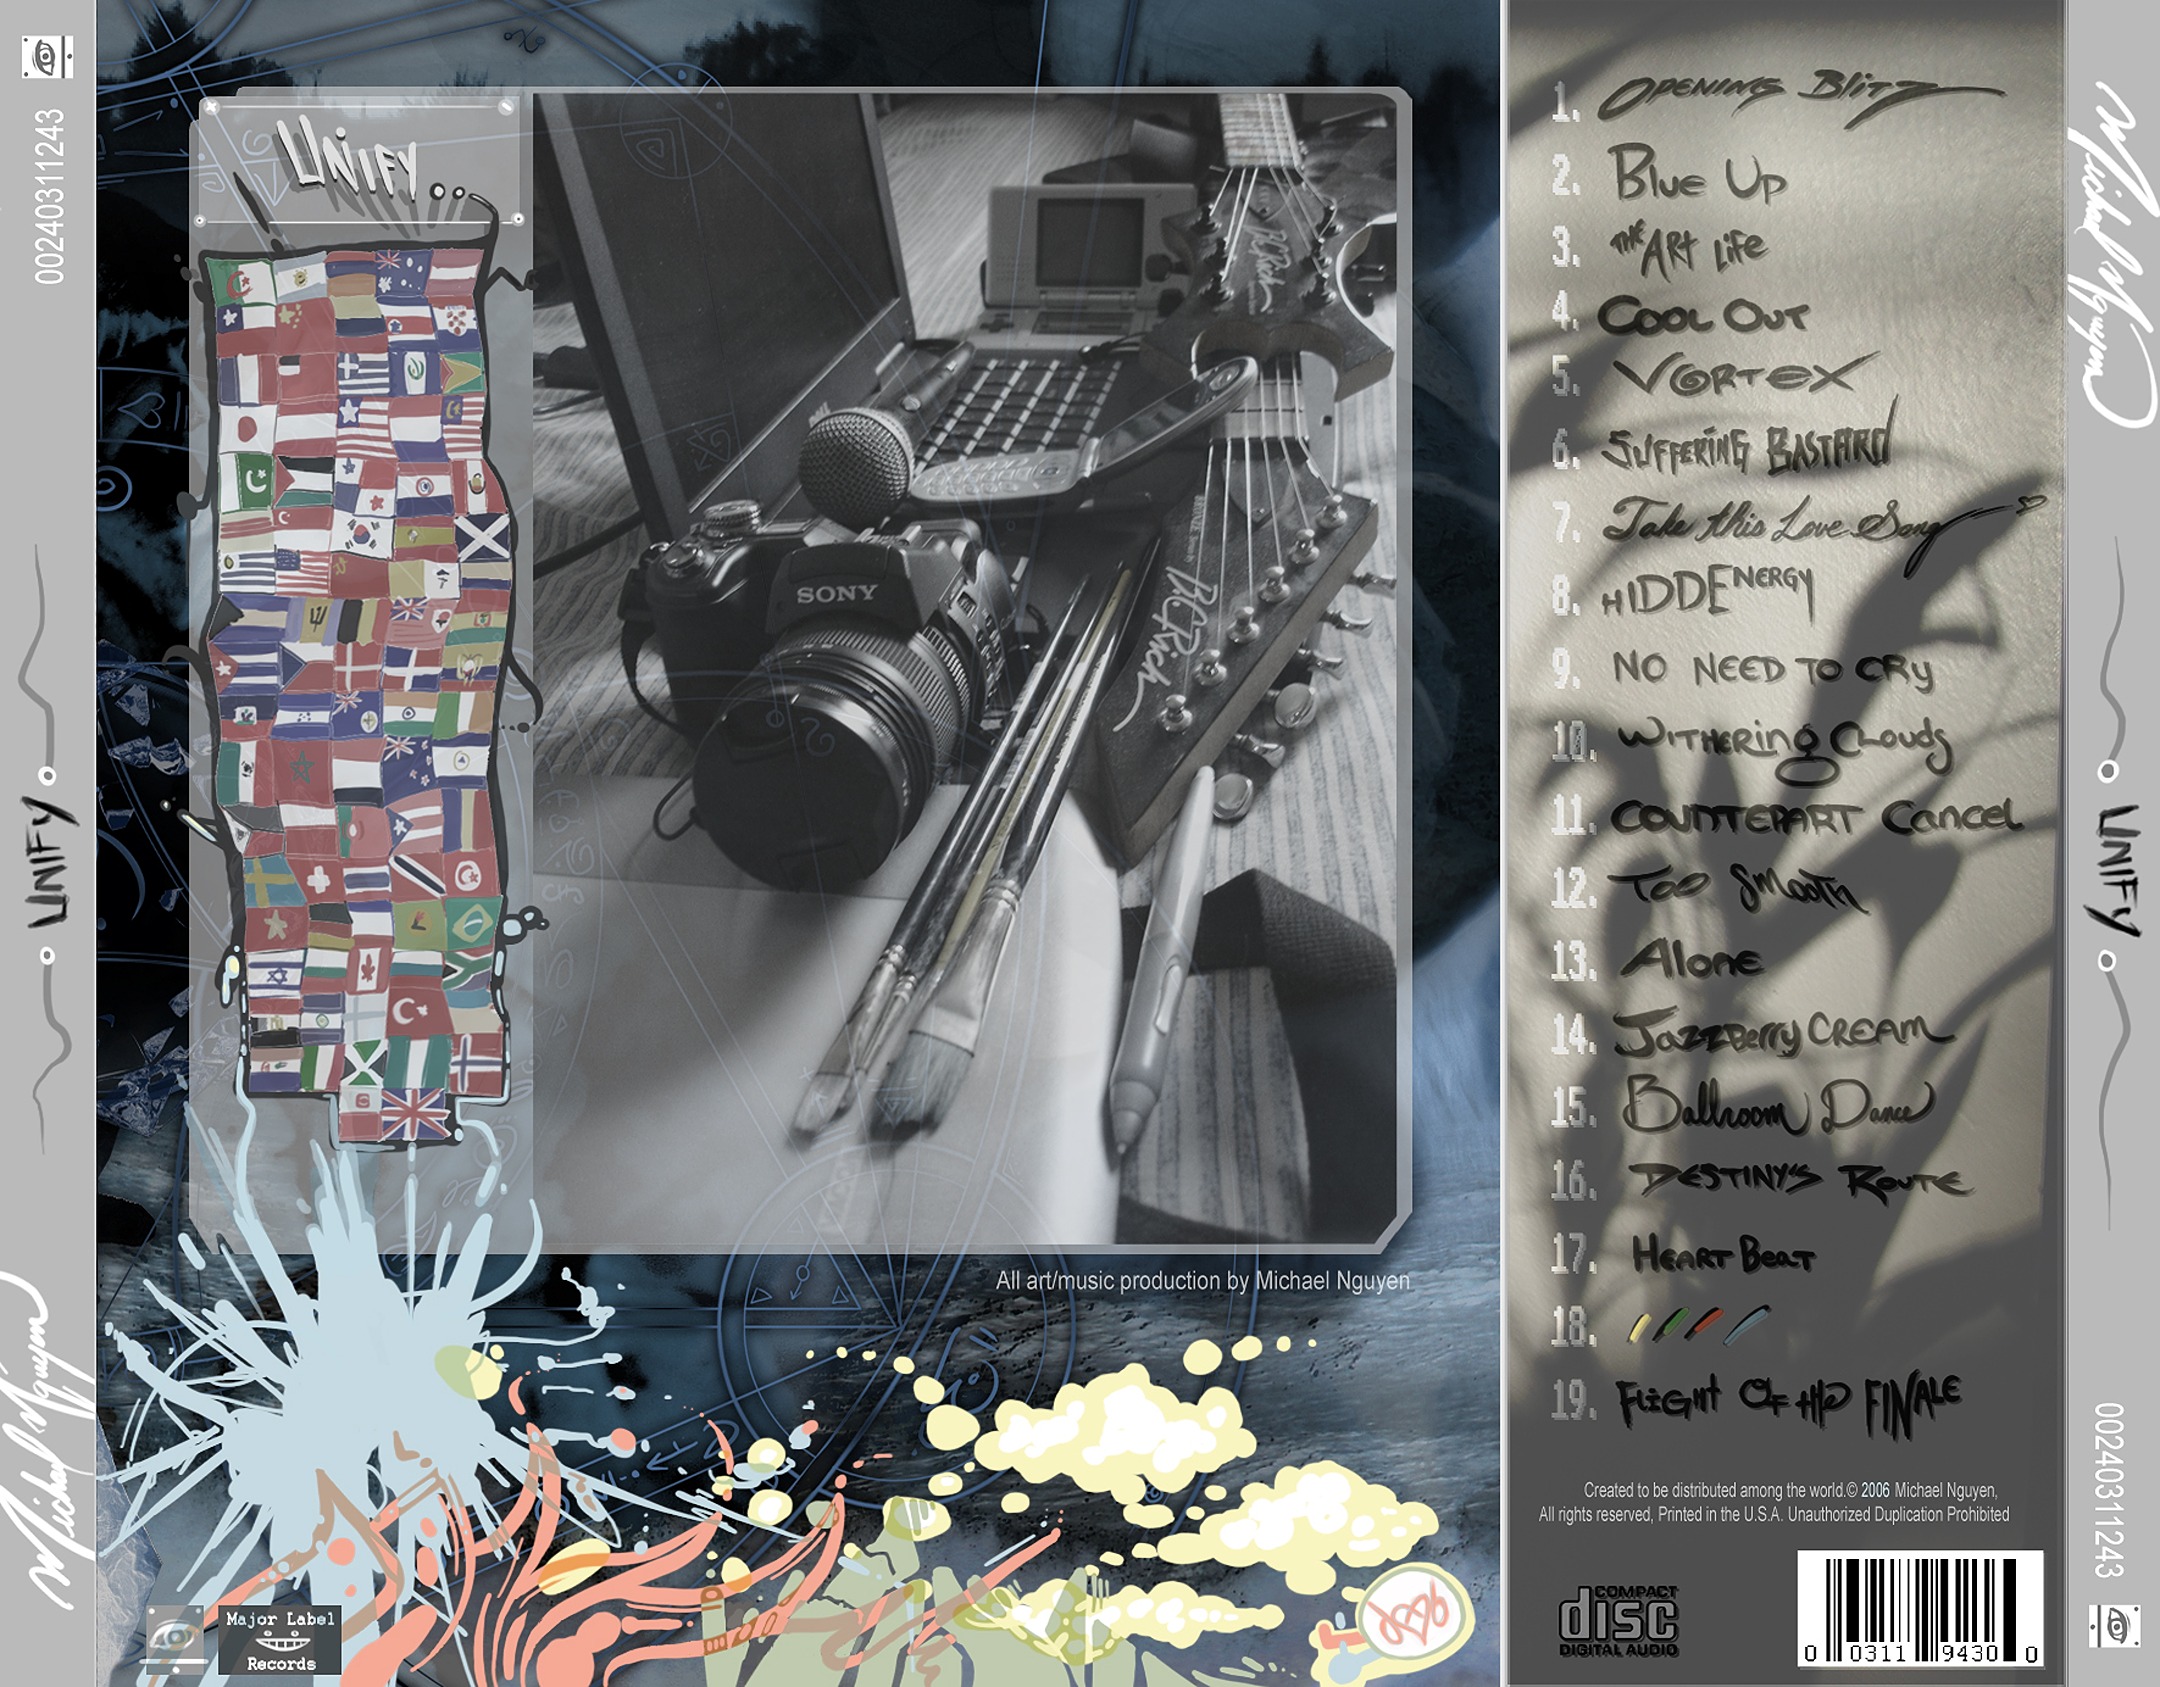 0024031124​3
UNIFY
Michael Nguyen
UNIFY...
BCRich
SONY
BCRich
All art/music production by Michael Nguyen
Major Label
Records
1. OPENING BLITZ
2. Blue Up
3. THE ART LiFe
4. COOL OUT
5. VORTEX
6. SUFFERING BASTARD
7. Take this Love Song
8. HIDDENERGY
9. NO NEED TO CRY
10. WITHERING CLOUDS
11. COUNTERPART Cancel
12. TOO SMOOTH
13. Alone
14. JAZZBerry CREAM
15. Ballroom Dance
16. DESTINY'S ROUTE
17. HEART BEAT
18.
19. FLIGHT OF the FINALE
Created to be distributed among the world.© 2006 Michael Nguyen,
All rights reserved, Printed in the U.S.A. Unauthorized Duplication Prohibited
COMPACT
disc
DIGITAL AUDIO
0 0311 9430 0
Michael Nguyen
UNIFY
00240311243